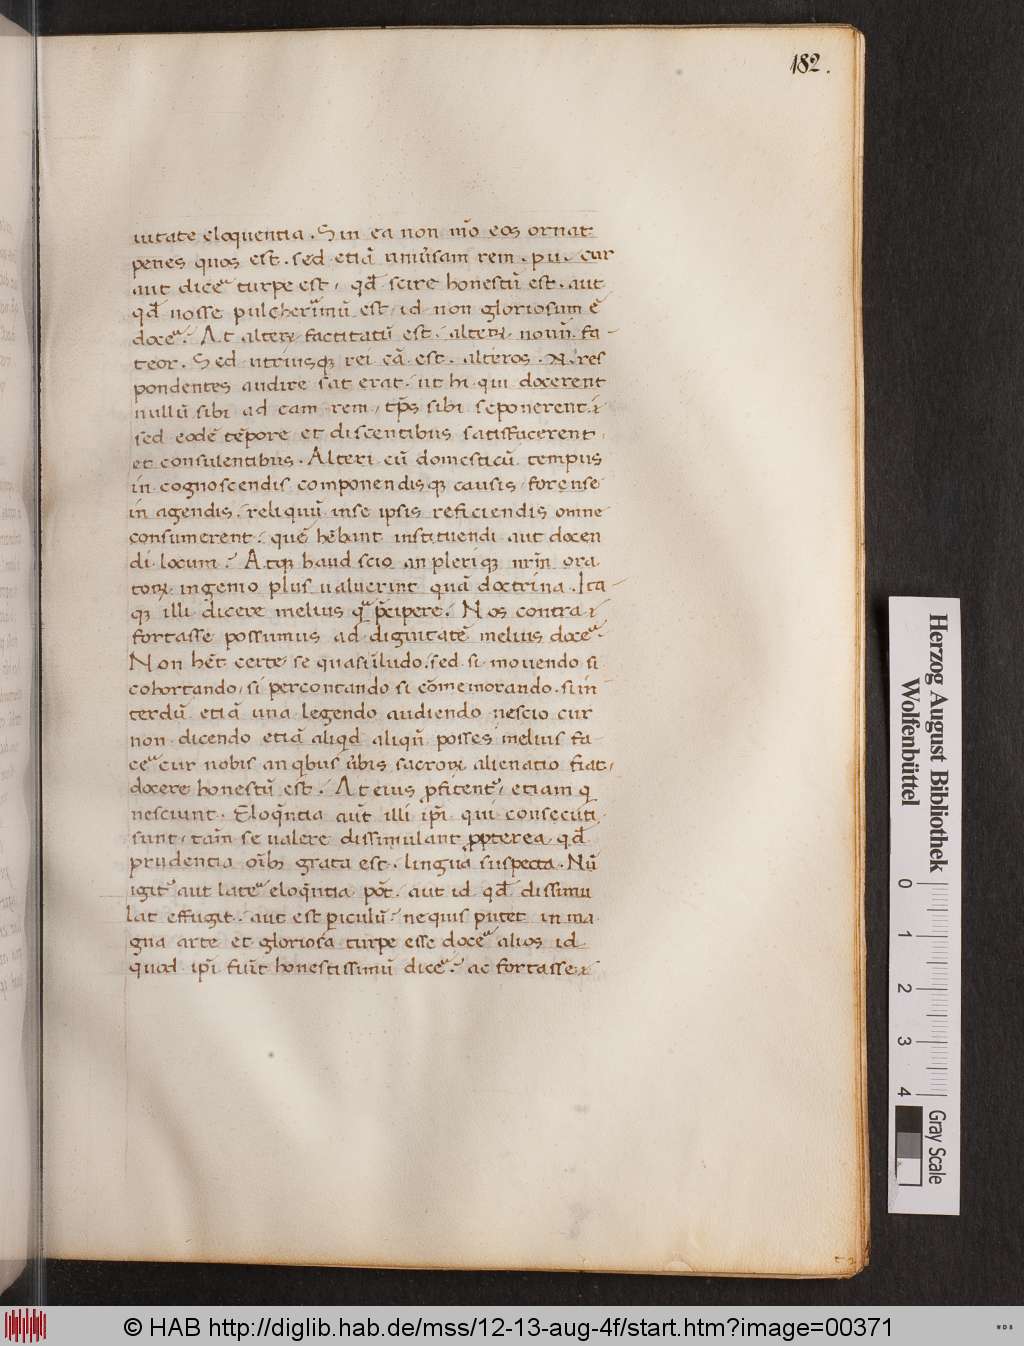 182.
uitate eloquentia. Sin ea non mō eos ornat
penes quos est. sed etiā uniūsam rem. p u. cur
aut dicē turpe est, qd̄ scire honestū est. aut
qd̄ nosse pulcherimū est, id non gloriosum ē
docē. At alteri factitatū est. alteri nouū. fa-
teor. Sed utriusq; rei cā est. alteros. N. res
pondentes audire sat erat. ut hi qui docerent
nullū sibi ad eam rem, tp̄s sibi seponerent.
sed eodē tēpore et discentibus satisfacerent.
et consulentibus. Alteri cū domesticū tempus
in cognoscendis componendisq; causis, forense
in agendis. reliquū inse ipsis reficiendis omne
consumerent. quē hēbant instituendi aut docen
di locum? Atq; haud scio an pleriq; nrīn ora
tor ingenio plus ualuerint quā doctrina. Ita-
q; illi dicere melius q̄ p̄cipere. Nos contra
fortasse possumus ad dignitatē melius docē.
Non hēt certe, se quasi īludo. sed si mouendo si
cohortando, si percontando si cōmemorando. si in
terdū etiā una legendo audiendo nescio cur
non dicendo etiā aliqd aliqn̄ posses melius fa-
cē cur nobis an qbus ūbis sacrorū alienatio fiat,
docere honestū est. At eius pfitent, etiam q
nesciunt. Eloqn̄tia aūt illi ipi qui consecuti
sunt, tam̄ se ualere dissimulant ppterea qd̄
prudentia oīb; grata est. lingua suspecta. Nū
igit aut latē eloqn̄tia pōt. aut id qd̄ dissimu
lat effugit. aut est piculū. nequis putet in ma
gna arte et gloriosa turpe esse docē alios id
quod ipi fuit honestissimū dicē. ac fortasse
Herzog August Bibliothek
Wolfenbüttel
0 1 2 3 4
Gray Scale
© HAB http://diglib.hab.de/mss/12-13-aug-4f/start.htm?image=00371